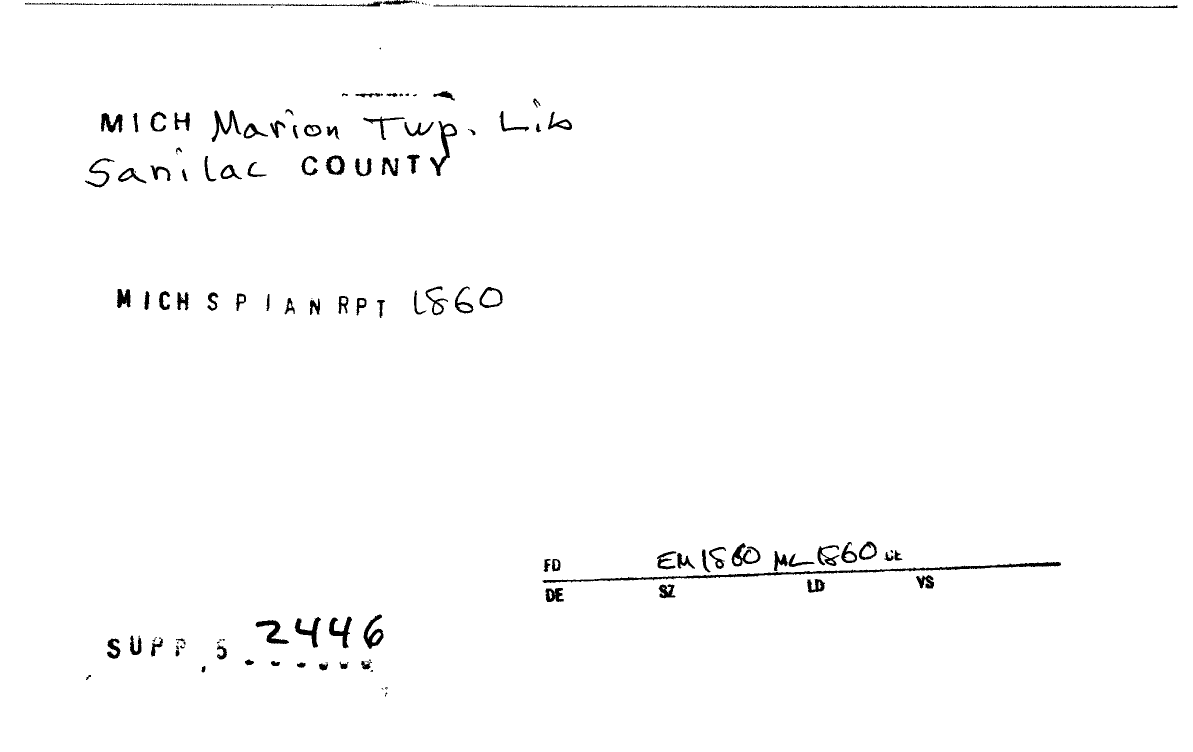 MICH Marion Twp. Lib
Sanilac COUNTY
MICH S P I A N RPT 1860
FD EM 1860 ML 1860
DE SZ LD VS
SUPP. 5 2446